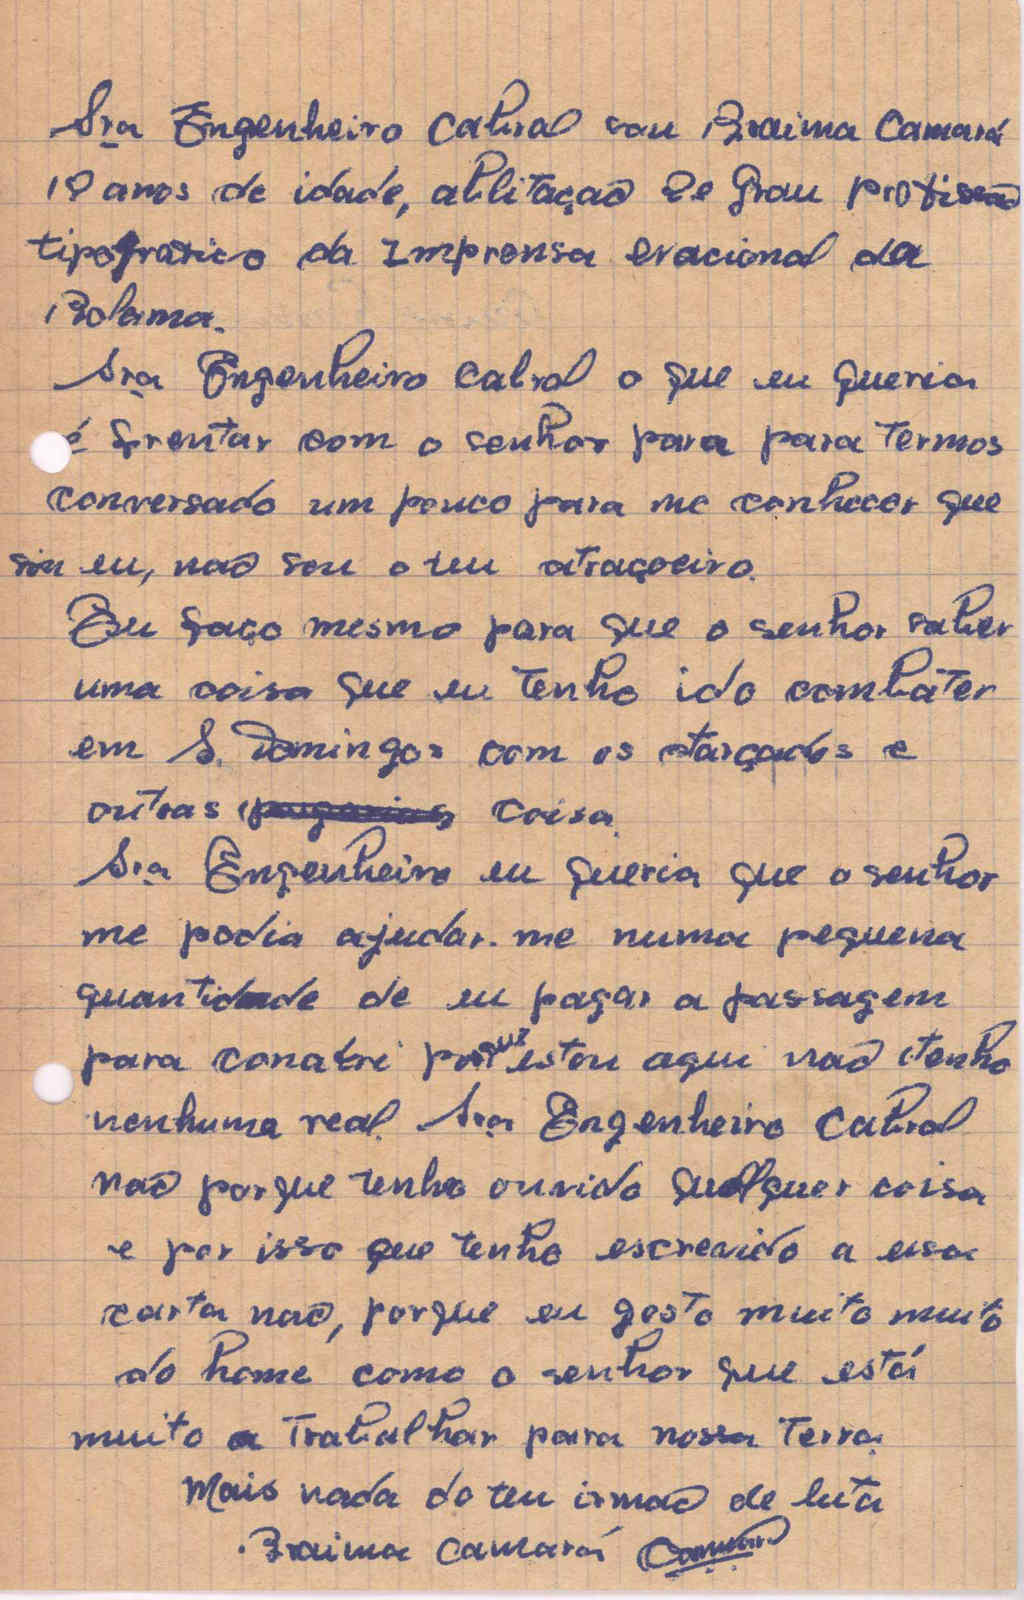 Sra Engenheiro Cabral sou Braima Camará
18 anos de idade, abilitação 2e Grau profissão
tipografico da Imprensa nacional da
Bolama.
Sra Engenheiro Cabral o que eu queria
é frentar com o senhor para para termos
conversado um pouco para me conhecer que
sin eu, não sou o teu atraçoeiro.
Eu faço mesmo para que o senhor saber
uma coisa que eu tenho ido combater
em S. Domingos com os starçados e
outras coisa.
Sra Engenheiro eu queria que o senhor
me podia ajudar-me numa pequena
quantidade de eu pagar a passagem
para conakri porque estou aqui não tenho
nenhuma real. Sra Engenheiro Cabral
não porque tenho ouvido qualquer coisa
e por isso que tenho escrevido a essa
carta não, porque eu gosto muito muito
do home como o senhor que está
muito a Trabalhar para nossa Terra.
Mais nada do teu irmão de luta
Braima Camará Camará